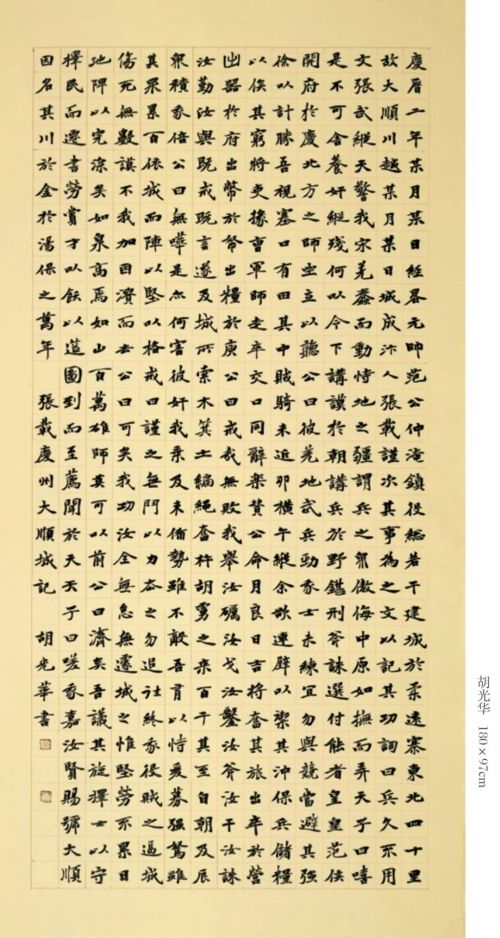 慶曆二年某月某日經略元帥范公仲淹鎮役總若干建城於柔遠寨東北四十里
故大順川越某月某日城成汴人張載謹次其事為之文以記其功詞曰兵久不用
文張武縱天警我宋羌蠢而動恃地之疆謂兵之眾傲侮中原如撫而弄天子曰嘻
是不可舍養奸縱殘何以令下講謨於朝講兵於野鑑刑斧誅選付能者皇皇范侯
開府於慶北方之師坐立以聽公曰彼羌地武兵勁我士未練宜勿與競當避其強
徐以計勝吾視塞口有田其中賊騎未近卯橫午縱余欲連壁以禦其沖保兵儲糧
以俟其窮將吏掾曹軍師走卒交口同辭樂贊公命月良日吉將奮其旅出卒於營
出器於府出幣於帑出糧於庾公曰戒哉無敗我舉汝礪汝戈汝鋈汝斧汝干汝誅
汝勤汝與既戒既言遂及城所索木箕土編繩奮杵胡虜之來百千其至自朝及辰
眾積我倍公曰無嘩是亦何害彼奸我乘及未備勢雖不敵吾有以恃爰募強駑雖
其眾累百依城而陣以堅以格戒曰謹之無鬥以力去之勿追社終我役賊之逼城
傷死無數謨不我加因潰而去公曰可矣我功汝全無怠無遽城之惟堅勞不累日
池陴以完深矣如泉高焉如山百萬雄師莫可以前公曰濟矣吾議其旋擇士以守
擇民而遷書勞賞才以飫以筵圖到而至薦聞於天天子曰嗟我嘉汝賢賜號大順
因名其川於金於湯保之萬年 張載慶州大順城記 胡光華書
胡光华 180×97cm